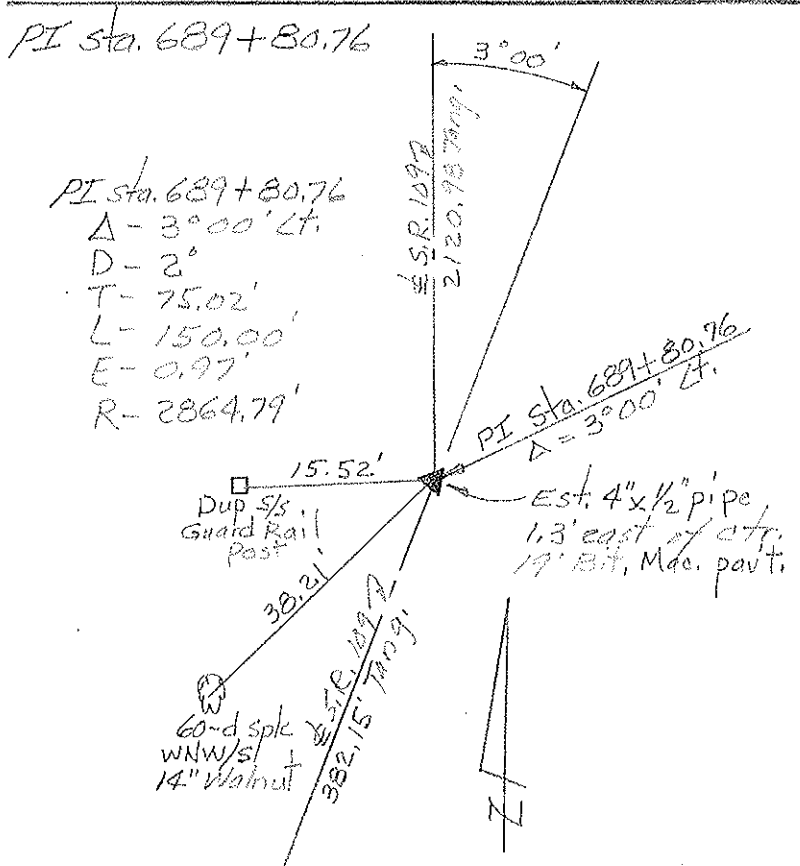 PI sta. 689+80.76
3°00'
PI sta. 689+80.76
Δ - 3°00' Lt.
D - 2°
T - 75.02'
L - 150.00'
E - 0.97'
R - 2864.79'
℄ S.R. 1097
2120.98 Tang.
PI Sta. 689+80.76
Δ = 3°00' Lt.
15.52'
Dup S/S
Guard Rail
Post
Est. 4"x1/2" pipe
1.3' east of ctr.
19' Bit. Mac. pav't.
38.21'
60-d spk
WNW/S/
14" Walnut
℄ S.R. 1097
382.15' Tang.
N